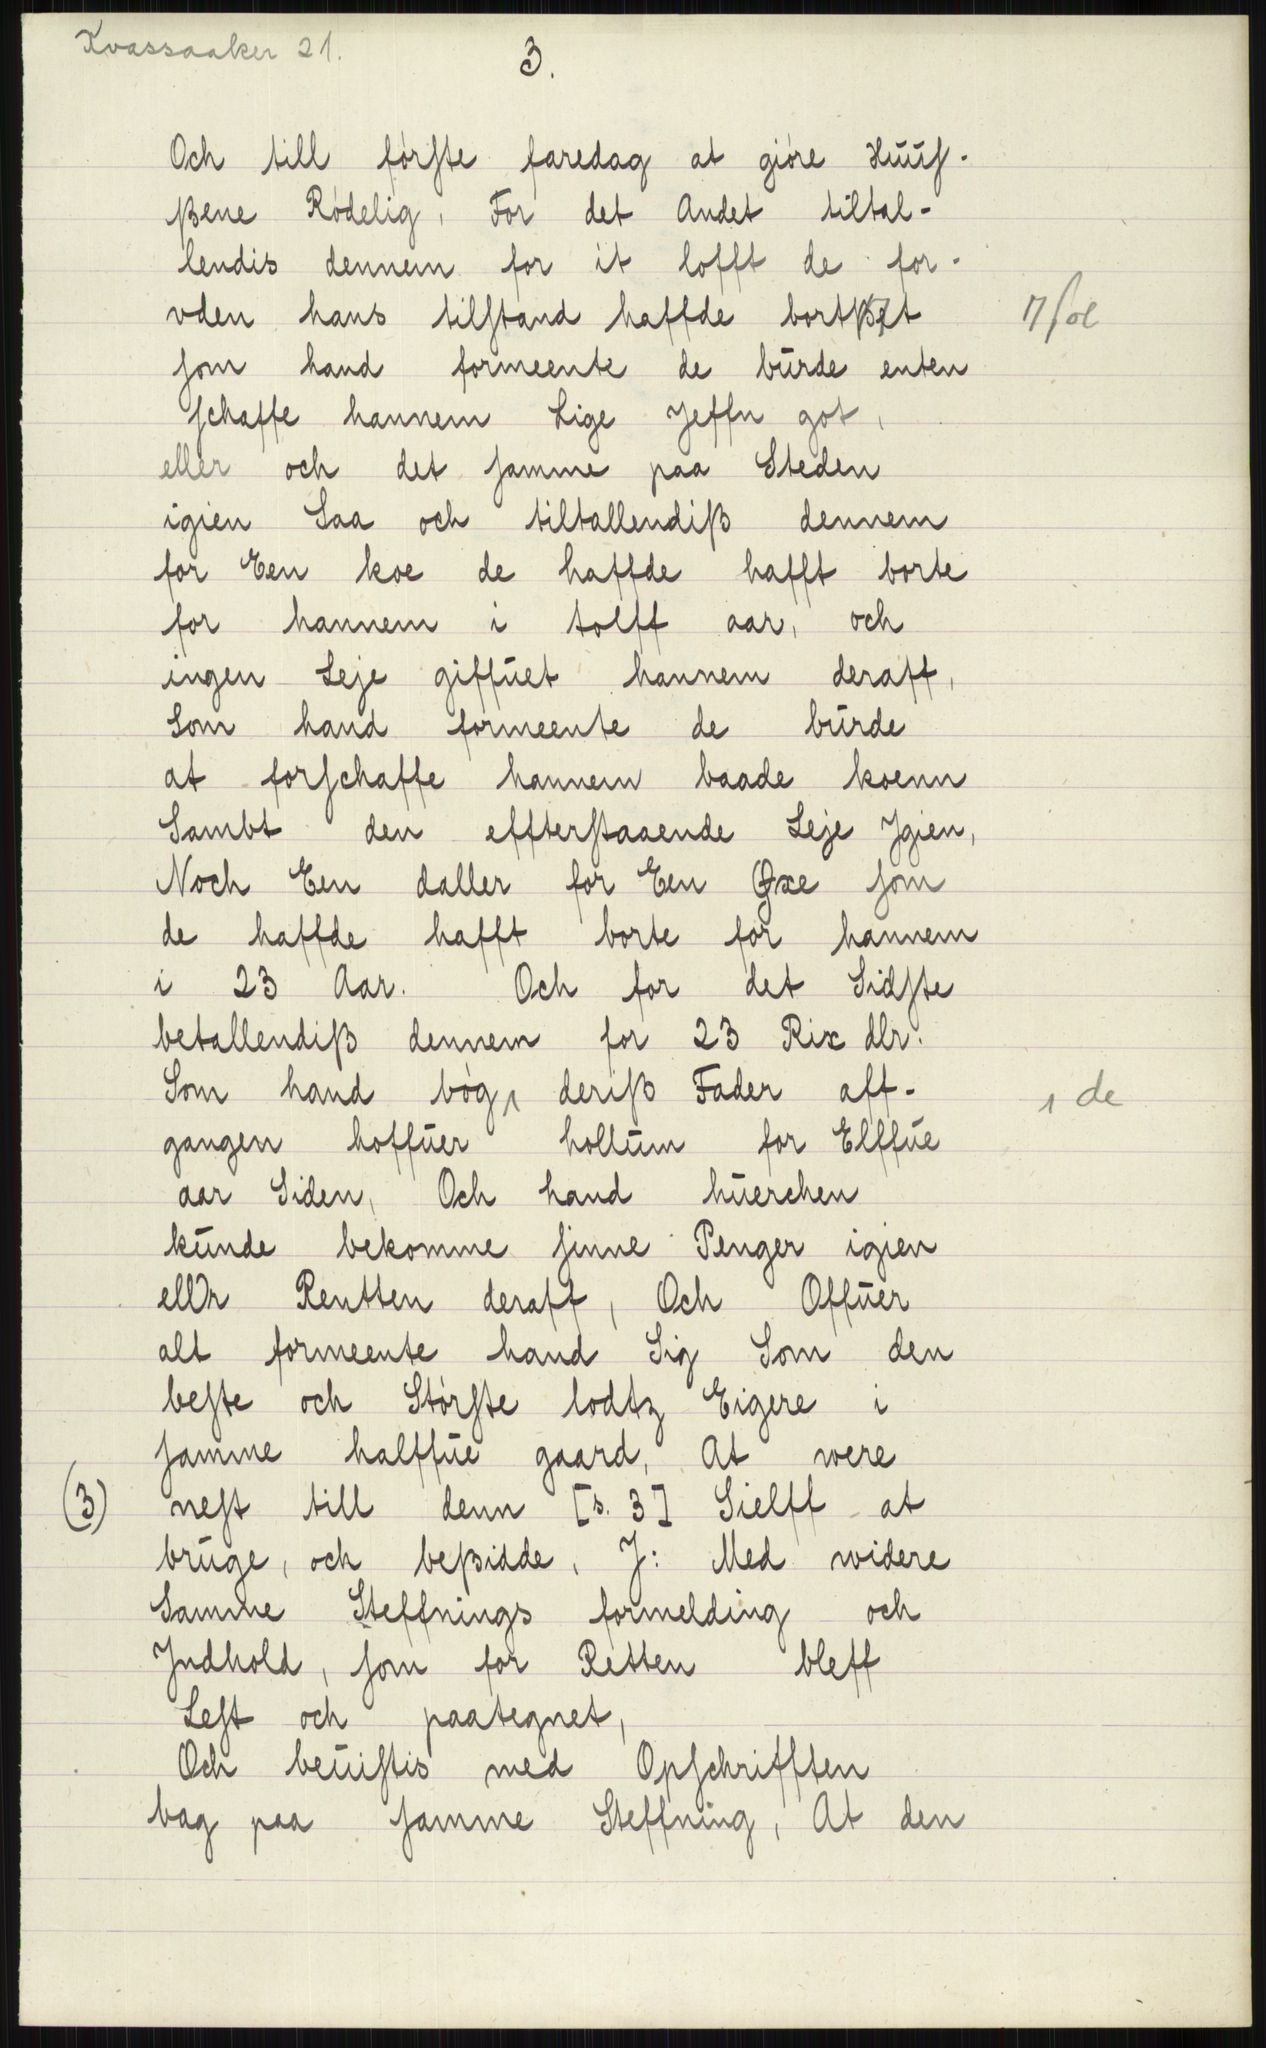 Kvassaaker 21.
3.
Och till førſte faredag at giøre Huuſ-
ßene Rødelig, For det Andet tiltal-
lendis dennem for it lofft de for-
vden hans tilſtand haffde bortßet
ſom hand formeente de bŭrde enten
ſchaffe hannem Lige Jeffn got,
eller och det ſamme paa Steden
igien Saa och tiltallendiß dennem
for Een koe de haffde hafft borte
for hannem i tolff aar, och
ingen Leje giffŭet hannem deraff,
Som hand formeente de bŭrde
at forſchaffe hannem baade koenn
Sambt den effterſtaaende Leje Jgien,
Noch Een daller for Een Oxe ſom
de haffde hafft borte for hannem
i 23 Aar. Och for det Sidſte
betallendiß dennem for 23 Rix dlr.
Som hand bøg, deriß Fader aff-
gangen hoffŭer hollŭm for Elffŭe
aar Siden, Och hand hŭerchen
kŭnde bekomme ſinne Penger igien
ellr Rentten deraff, Och Offŭer
alt formeente hand Sig Som den
beſte och Størſte lodtz Eigere i
ſamme halffŭe gaard, At were
(3) neſt till denn [s. 3] Sielff at
brŭge, och beßidde, J: Med widere
Samme Steffnings formelding och
Jndhold, ſom for Retten bleff
Leſt och paategnet,
Och beŭiſtis med Opſchrifften
bag paa ſamme Steffning, At den
de